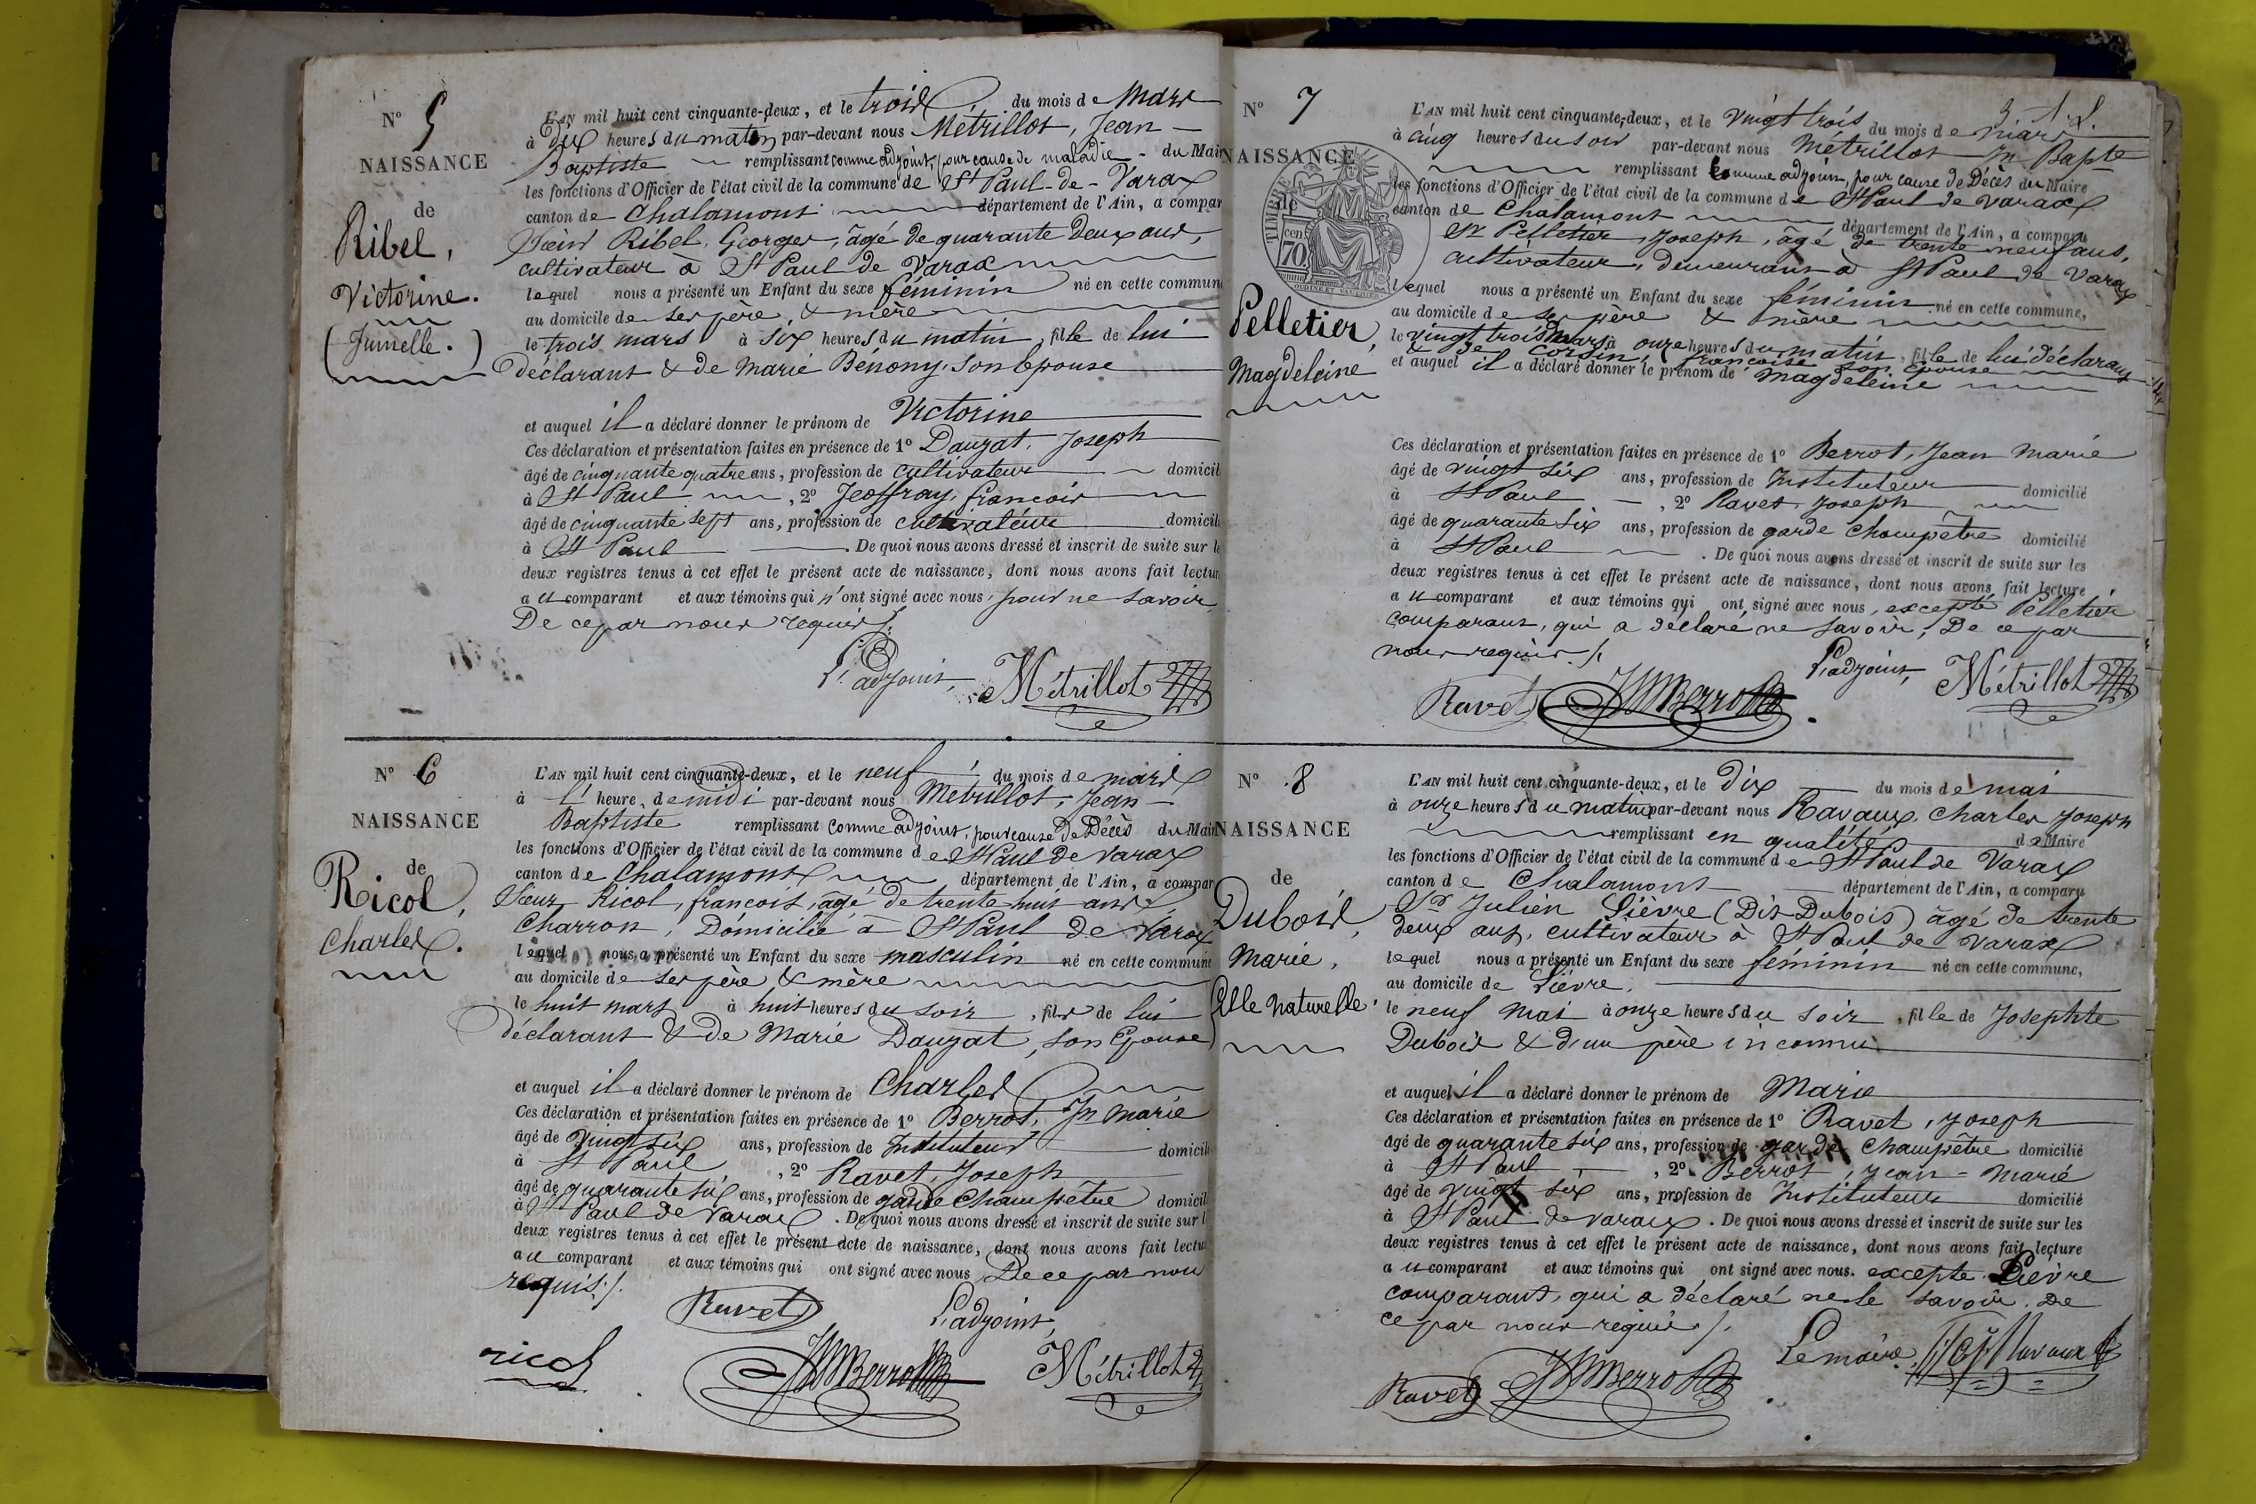 N° 5
NAISSANCE
de
Ribel,
Victorine.
(Jumelle.)
L'AN mil huit cent cinquante-deux, et le trois du mois de Mars
à Dix heures du matin par-devant nous Métrillot, Jean-
Baptiste remplissant comme adjoint, pour cause de maladie - du Mair
les fonctions d'Officier de l'état civil de la commune de St Paul-de-Varax
canton de Chalamont département de l'Ain, a compar
Sieur Ribel, Georges, âgé de quarante deux ans,
cultivateur à St Paul de Varax
lequel nous a présenté un Enfant du sexe féminin né en cette commun
au domicile de ses père & mère
le trois mars à six heures du matin, fille de lui
déclarant & de Marie Bénony, son Epouse
et auquel il a déclaré donner le prénom de Victorine
Ces déclaration et présentation faites en présence de 1° Dauzat, Joseph
âgé de cinquante quatre ans, profession de cultivateur domicil
à St Paul, 2° Jeoffray, françois
âgé de cinquante sept ans, profession de cultivateur domicili
à St Paul. De quoi nous avons dressé et inscrit de suite sur le
deux registres tenus à cet effet le présent acte de naissance, dont nous avons fait lectur
au comparant et aux témoins qui n'ont signé avec nous, pour ne savoir,
De ce par nous requis /.
L'adjoint, Métrillot
N° 6
NAISSANCE
de
Ricol,
Charles.
L'AN mil huit cent cinquante-deux, et le neuf du mois de mars
à l'heure de midi par-devant nous Métrillot, Jean-
Baptiste remplissant comme adjoint, pour cause de Décès du Mair
les fonctions d'Officier de l'état civil de la commune de St Paul de Varax
canton de Chalamont département de l'Ain, a compar
Sieur Ricol, françois, âgé de trente huit ans
Charron, Domicilié à St Paul de Varax
lequel nous a présenté un Enfant du sexe masculin né en cette commune
au domicile de ses père & mère
le huit mars à huit heures du soir, fils de lui
déclarant & de Marie Dauzat, son Epouse
et auquel il a déclaré donner le prénom de Charles
Ces déclaration et présentation faites en présence de 1° Berrot, Jn Marie
âgé de vingt six ans, profession de Instituteur domicili
à St Paul, 2° Ravet, Joseph
âgé de quarante six ans, profession de garde Champêtre domicil
à St Paul de Varax. De quoi nous avons dressé et inscrit de suite sur l
deux registres tenus à cet effet le présent acte de naissance, dont nous avons fait lectu
au comparant et aux témoins qui ont signé avec nous De ce par nou
requis /.
Ravet L'adjoint,
ricol JMBerrot Métrillot
N° 7
NAISSANCE
de
Pelletier,
Magdeleine
TIMBRE
70 cen
3 A.L.
L'AN mil huit cent cinquante-deux, et le vingt trois du mois de mars
à cinq heures du soir par-devant nous Métrillot Jn Bapte
remplissant comme adjoint, pour cause de Décès du Maire
les fonctions d'Officier de l'état civil de la commune de St Paul de Varax
canton de Chalamont département de l'Ain, a comparu
Sr Pelletier, Joseph, âgé de trente neuf ans,
cultivateur, demeurant à St Paul de Varax
lequel nous a présenté un Enfant du sexe féminin né en cette commune,
au domicile de ses père & mère
le vingt trois Mars à onze heures du matin, fille de lui déclarant
& de Corsin, françoise son Epouse
et auquel il a déclaré donner le prénom de Magdeleine
Ces déclaration et présentation faites en présence de 1° Berrot, Jean Marie
âgé de vingt six ans, profession de Instituteur domicilié
à St Paul, 2° Ravet, Joseph
âgé de quarante six ans, profession de garde Champêtre domicilié
à St Paul. De quoi nous avons dressé et inscrit de suite sur les
deux registres tenus à cet effet le présent acte de naissance, dont nous avons fait lecture
au comparant et aux témoins qui ont signé avec nous, excepté Pelletier
comparant, qui a déclaré ne savoir, De ce par
nous requis /.
L'adjoint, Métrillot
Ravet JMBerrot
N° 8
NAISSANCE
de
Dubois,
Marie,
fille naturelle.
L'AN mil huit cent cinquante-deux, et le Dix du mois de mai
à onze heures du matin par-devant nous Ravaux, Charles Joseph
remplissant en qualité de Maire
les fonctions d'Officier de l'état civil de la commune de St Paul de Varax
canton de Chalamont département de l'Ain, a comparu
Sr Julien Lièvre (Dit Dubois) âgé de trente
deux ans, cultivateur à St Paul de Varax
lequel nous a présenté un Enfant du sexe féminin né en cette commune,
au domicile de Lièvre,
le neuf Mai à onze heures du soir, fille de Josephte
Dubois & d'un père inconnu
et auquel il a déclaré donner le prénom de Marie
Ces déclaration et présentation faites en présence de 1° Ravet, Joseph
âgé de quarante six ans, profession de garde Champêtre domicilié
à St Paul, 2° Berrot, Jean-Marie
âgé de vingt six ans, profession de Instituteur domicilié
à St Paul de Varax. De quoi nous avons dressé et inscrit de suite sur les
deux registres tenus à cet effet le présent acte de naissance, dont nous avons fait lecture
au comparant et aux témoins qui ont signé avec nous. excepté Lièvre
comparant, qui a déclaré ne le savoir. De
ce par nous requis /.
Le maire, Ravaux
Ravet JMBerrot